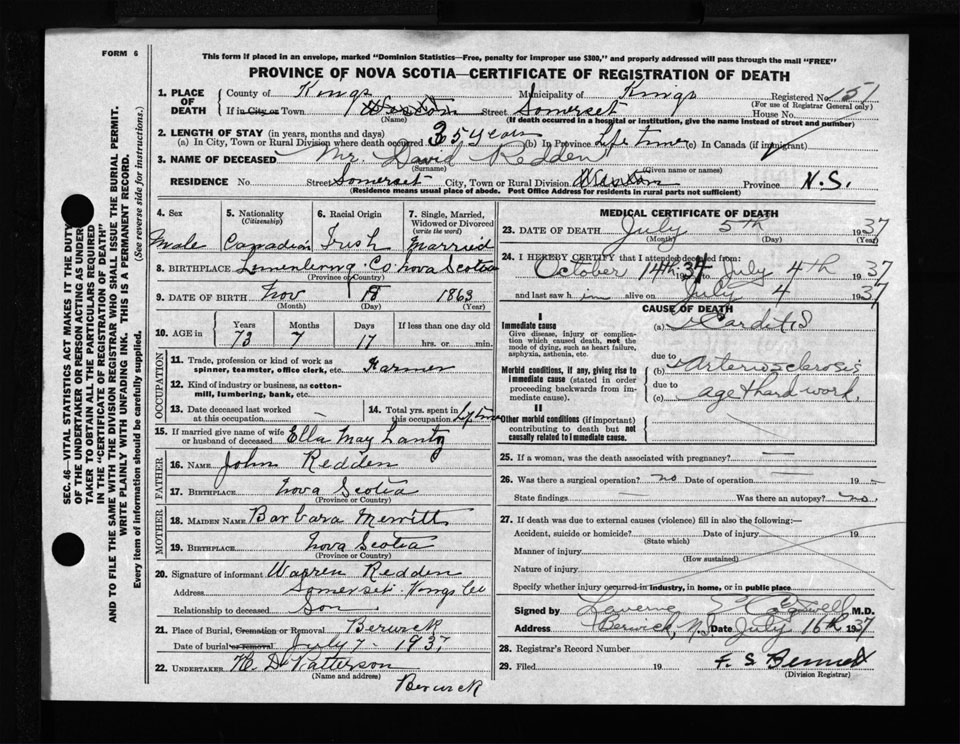 FORM 6
This form if placed in an envelope, marked "Dominion Statistics—Free, penalty for improper use $300," and properly addressed will pass through the mail "FREE"
PROVINCE OF NOVA SCOTIA—CERTIFICATE OF REGISTRATION OF DEATH
SEC. 46—VITAL STATISTICS ACT MAKES IT THE DUTY
OF THE UNDERTAKER OR PERSON ACTING AS UNDER-
TAKER TO OBTAIN ALL THE PARTICULARS REQUIRED
IN THE "CERTIFICATE OF REGISTRATION OF DEATH"
AND TO FILE THE SAME WITH THE DIVISION REGISTRAR WHO SHALL ISSUE THE BURIAL PERMIT.
WRITE PLAINLY WITH UNFADING INK. THIS IS A PERMANENT RECORD.
Every item of information should be carefully supplied. (See reverse side for instructions.)
1. PLACE OF DEATH County of Kings Municipality of Kings Registered No. 151
(For use of Registrar General only)
If in City or Town Street Somerset House No.
(Name) (If death occurred in a hospital or institution, give the name instead of street and number)
2. LENGTH OF STAY (in years, months and days)
(a) In City, Town or Rural Division where death occurred 35 years (b) In Province Life time (c) In Canada (if immigrant)
3. NAME OF DECEASED Mr. David Redden
(Surname) (Given name or names)
RESIDENCE No. Street Somerset City, Town or Rural Division Province N.S.
(Residence means usual place of abode. Post Office Address for residents in rural parts not sufficient)
4. Sex Male
5. Nationality (Citizenship) Canadian
6. Racial Origin Irish
7. Single, Married, Widowed or Divorced (write the word) Married
8. BIRTHPLACE Lunenburg Co. Nova Scotia
(Province or Country)
9. DATE OF BIRTH Nov 18 1863
(Month) (Day) (Year)
10. AGE in Years 73 Months 7 Days 17 If less than one day old hrs. or min.
OCCUPATION
11. Trade, profession or kind of work as spinner, teamster, office clerk, etc. Farmer
12. Kind of industry or business, as cotton-mill, lumbering, bank, etc.
13. Date deceased last worked at this occupation –
14. Total yrs. spent in this occupation Lifetime
15. If married give name of wife or husband of deceased Ella May Lantz
FATHER
16. NAME John Redden
17. BIRTHPLACE Nova Scotia
(Province or Country)
MOTHER
18. MAIDEN NAME Barbara Merritt
19. BIRTHPLACE Nova Scotia
(Province or Country)
20. Signature of informant Warren Redden
Address Somerset Kings Co
Relationship to deceased Son
21. Place of Burial, Cremation or Removal Berwick
Date of burial or removal July 7 - 1937
22. UNDERTAKER Patterson
(Name and address)
Berwick
MEDICAL CERTIFICATE OF DEATH
23. DATE OF DEATH July 5th 1937
(Month) (Day) (Year)
24. I HEREBY CERTIFY that I attended deceased from
October 14th 1934 to July 4th 1937
and last saw him alive on July 4 1937
CAUSE OF DEATH
I
Immediate cause
Give disease, injury or complication which caused death, not the mode of dying, such as heart failure, asphyxia, asthenia, etc.
(a) Carditis
due to
Morbid conditions, if any, giving rise to immediate cause (stated in order proceeding backwards from immediate cause).
(b) Arteriosclerosis
due to
(c) age & hard work
II
Other morbid conditions (if important) contributing to death but not causally related to immediate cause.
25. If a woman, was the death associated with pregnancy? —
26. Was there a surgical operation? no Date of operation 19
State findings — Was there an autopsy? no.
27. If death was due to external causes (violence) fill in also the following:—
Accident, suicide or homicide? Date of injury 19
(State which)
Manner of injury
(How sustained)
Nature of injury
Specify whether injury occurred in industry, in home, or in public place
Signed by Laverne M.D.
Address Berwick, N.S. Date July 16th 1937
28. Registrar's Record Number
29. Filed 19 F. S. Bennet
(Division Registrar)